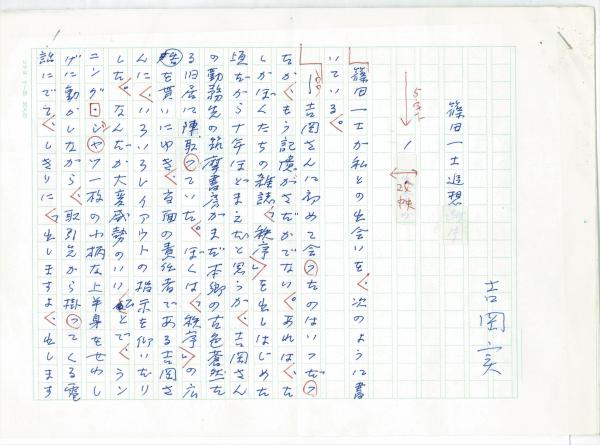 篠田一士追想
吉岡実
5字下
1
2字
篠田一士が私との出会いを、次のように書
いている。
吉岡さんに初めて会ったのはいつだっ
たか、もう記憶がさだかでない。あれは、た
しかぼくたちの雑誌〈秩序〉を出しはじめた
頃だから十年ほどまえだと思うが、吉岡さん
の勤務先の筑摩書房がまだ本郷の古色蒼然た
る旧居に陣取っていた。ぼくは〈秩序〉の広
告を貰いにゆき、当面の責任者である吉岡さ
んに、いろいろレイアウトの指示を仰いだり
した。なんだか大変威勢のいいひとで、ラン
ニング・シャツ一枚の小柄な上半身をせわし
げに動かしながら、取引先から掛ってくる電
話にでて、しきりに〈出しますよ、出します